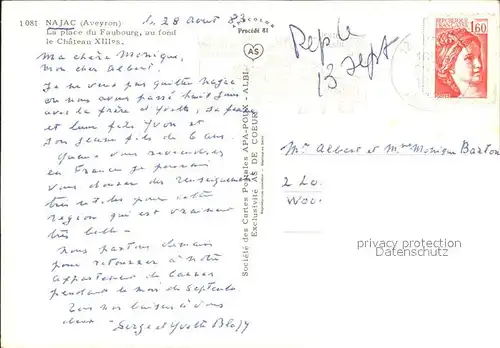 1 081 NAJAC (Aveyron)
La place du Faubourg, au fond
le Château XIIIes.
le 28 août 83
APACOLOR
Procédé 81
AS
Reple
13 sept
1,60
Ma chère Monique,
Mon cher Albert
Je ne veux pas quitter Najac
où nous avons passé huit jours
avec le frère d'Yvette, sa femme
et leur fils Yvon et
son jeune fils de 6 ans.
Quand vous reviendrez
en France je pourrai
vous donner des renseignements
très utiles pour cette
région qui est vraiment
très belle -
Nous partons demain
pour retourner à notre
appartement de
pendant le mois de Septembre.
Tous nos baisers à vous
deux - Serge et Yvette Blajy
Société des Cartes Postales APA-POUX - ALBI-
Exclusivité AS DE COEUR
Mr Albert et Mme Monique Barton
2 Lo
Woo
privacy protection
ansichtskartenversand.com